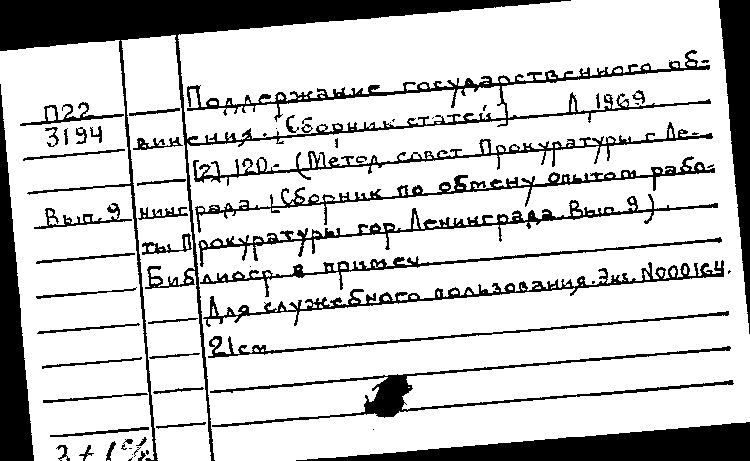 П22
3194
Вып. 9
Поддержание государственного об-
винения. [Сборник статей]. Л, 1969.
[2], 120.- (Метод. совет Прокуратуры г. Ле-
нинграда. [Сборник по обмену опытом рабо-
ты Прокуратуры гор. Ленинграда. Вып. 9).
Библиогр. в примеч.
Для служебного пользования. Экз. N000164.
21см.